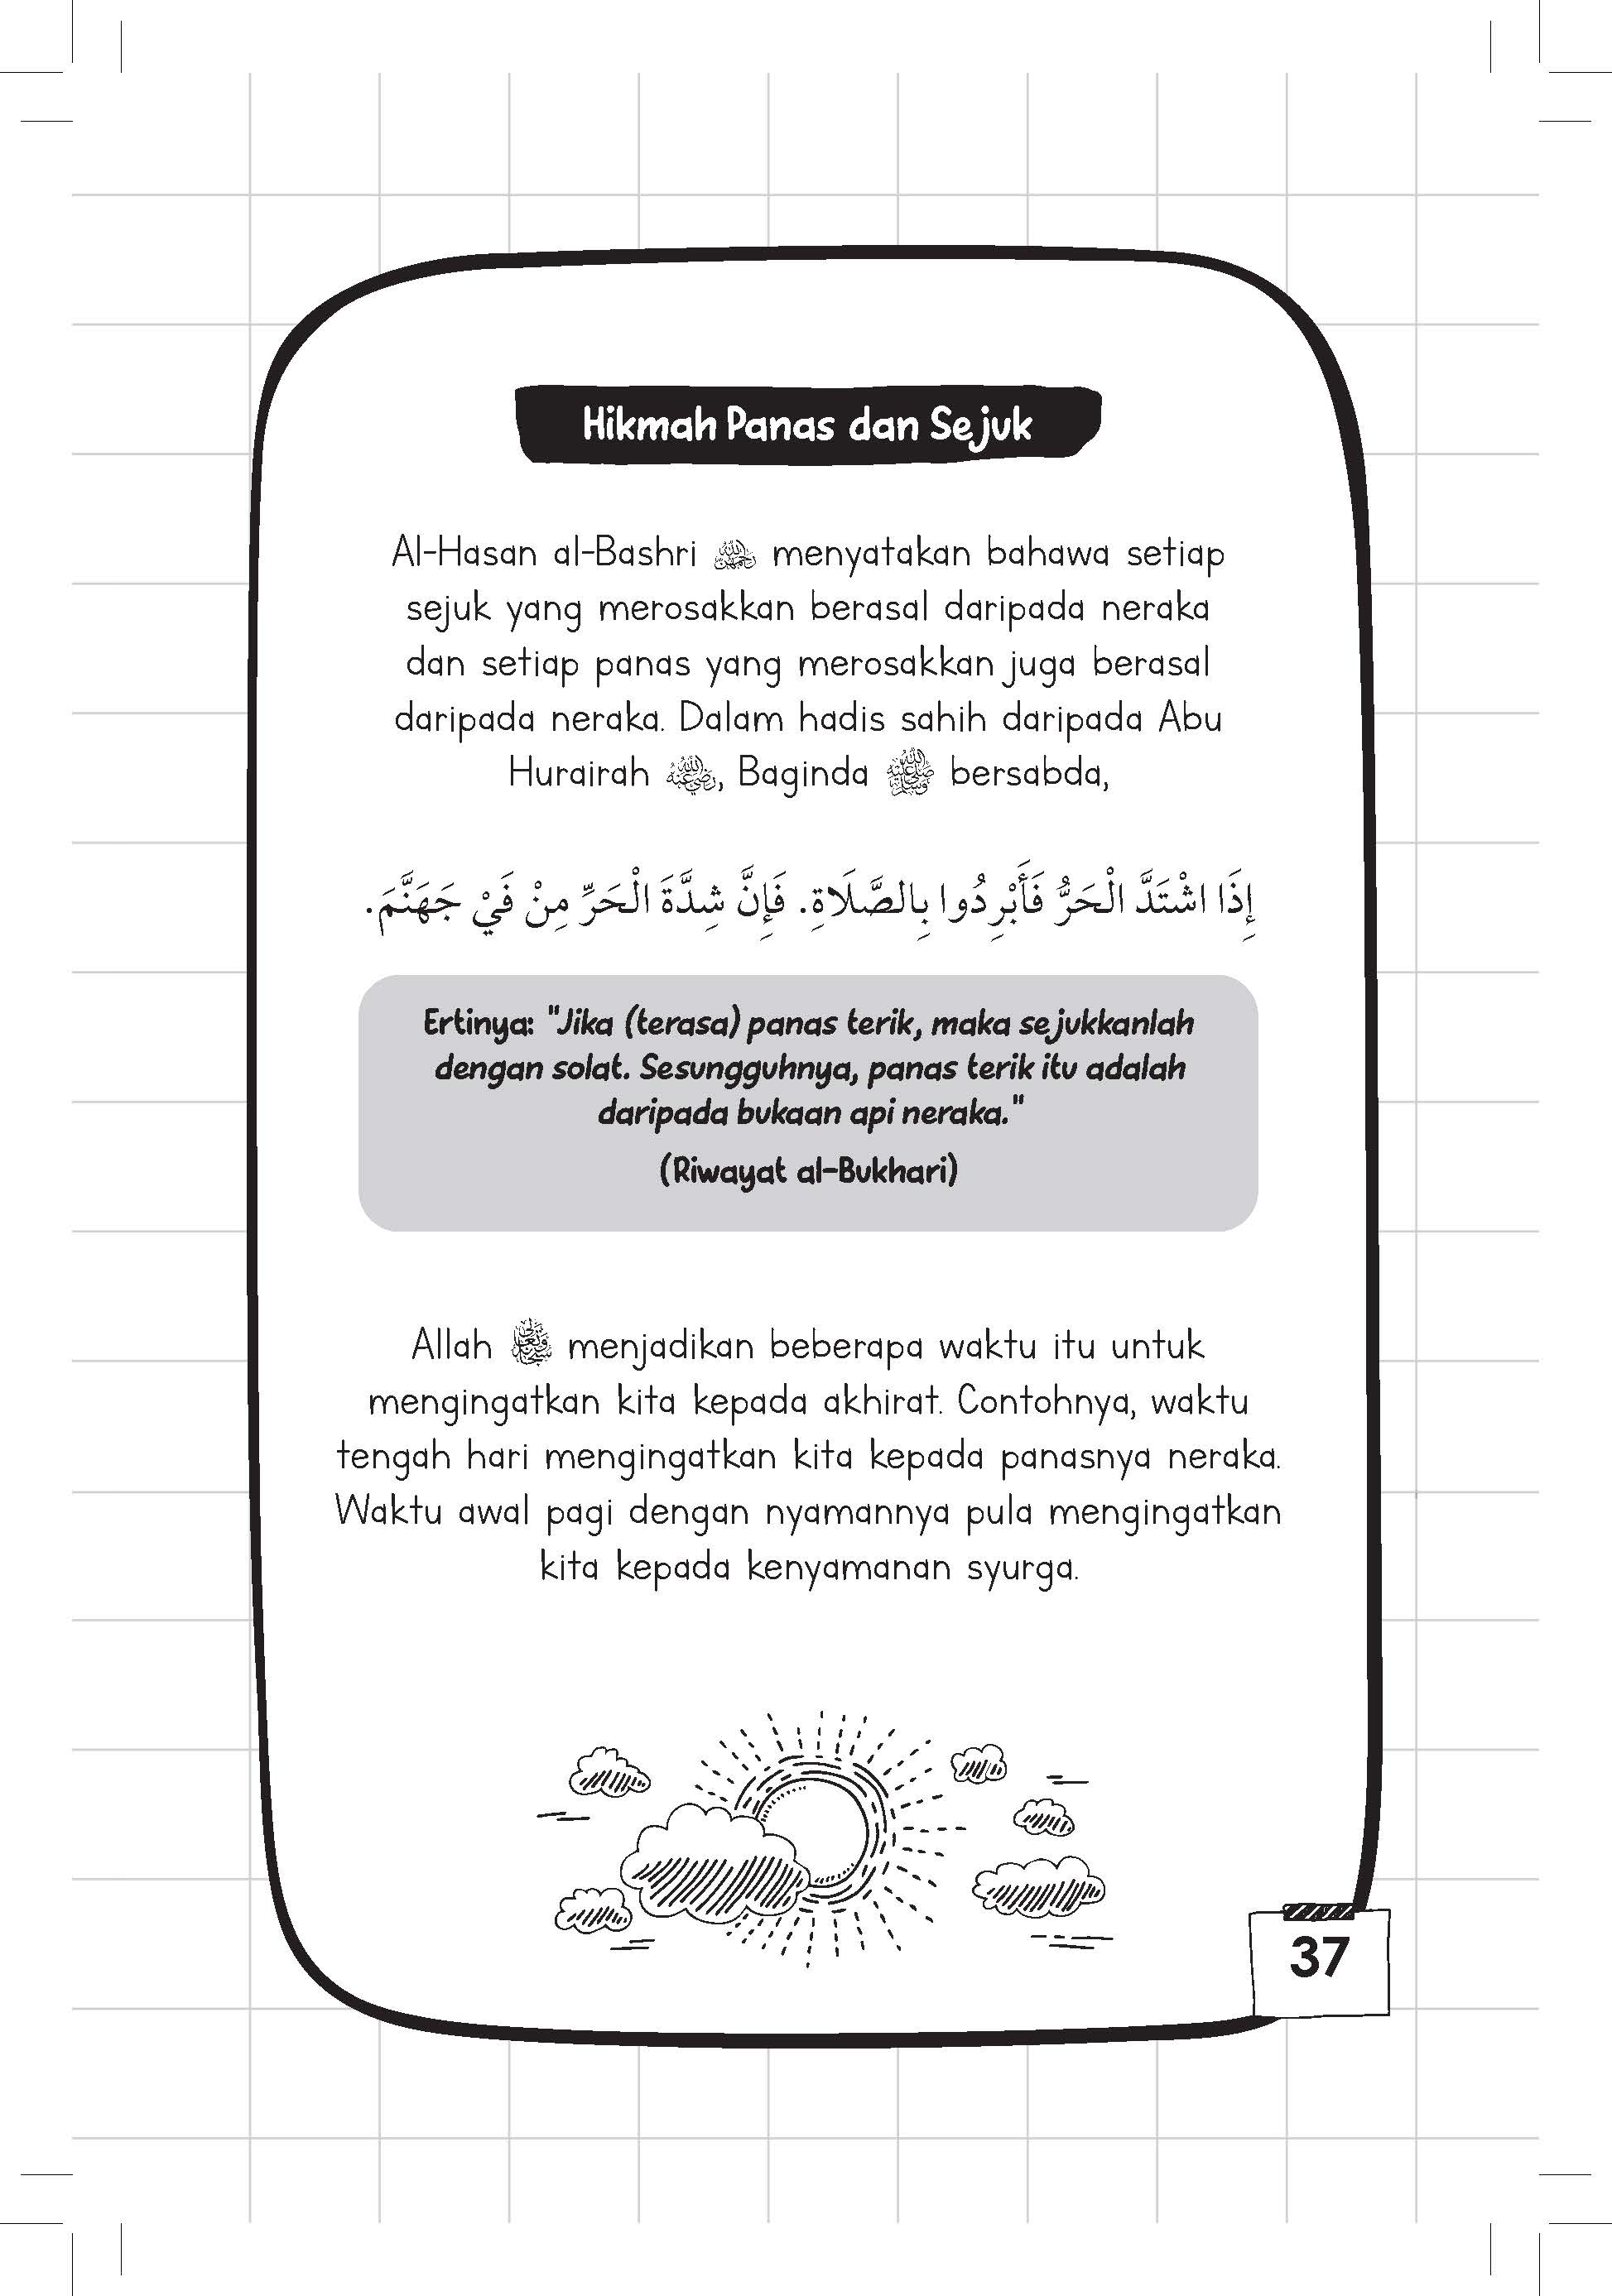 Hikmah Panas dan Sejuk
Al-Hasan al-Bashri رحمه الله menyatakan bahawa setiap
sejuk yang merosakkan berasal daripada neraka
dan setiap panas yang merosakkan juga berasal
daripada neraka. Dalam hadis sahih daripada Abu
Hurairah رضي الله عنه, Baginda ﷺ bersabda,
إِذَا اشْتَدَّ الْحَرُّ فَأَبْرِدُوا بِالصَّلَاةِ. فَإِنَّ شِدَّةَ الْحَرِّ مِنْ فَيْ جَهَنَّمَ.
Ertinya: "Jika (terasa) panas terik, maka sejukkanlah
dengan solat. Sesungguhnya, panas terik itu adalah
daripada bukaan api neraka."
(Riwayat al-Bukhari)
Allah سبحانه وتعالى menjadikan beberapa waktu itu untuk
mengingatkan kita kepada akhirat. Contohnya, waktu
tengah hari mengingatkan kita kepada panasnya neraka.
Waktu awal pagi dengan nyamannya pula mengingatkan
kita kepada kenyamanan syurga.
37